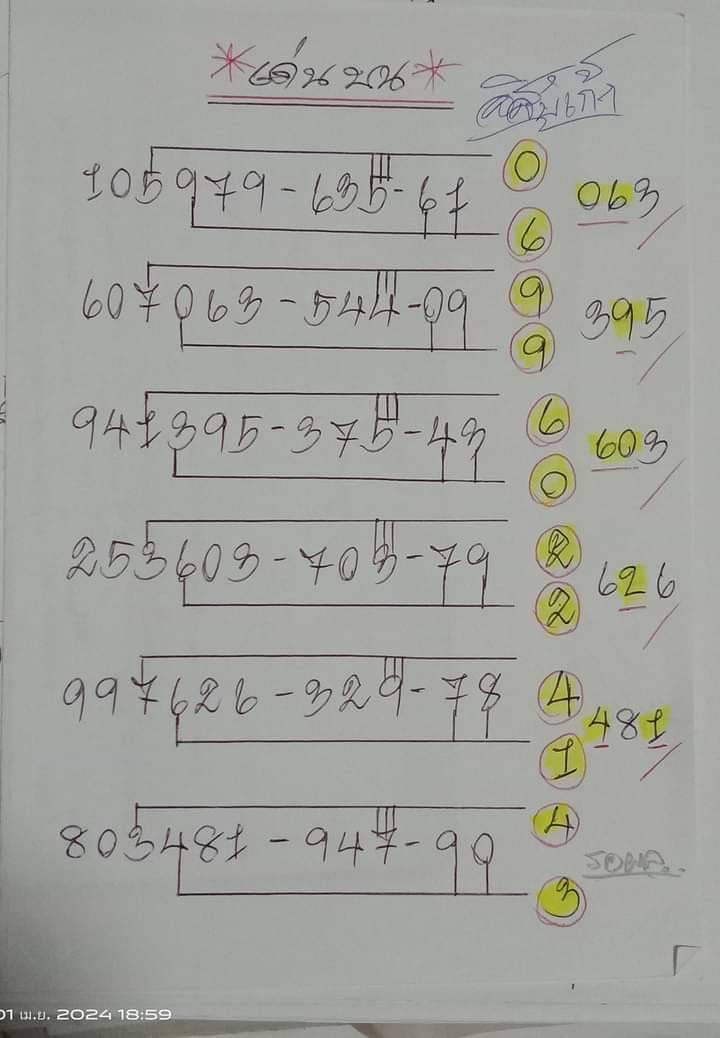 *เด่นบน*
105979-635-67 0 6 063
607063-544-09 9 9 395
941395-375-43 6 0 603
253603-703-79 2 2 626
997626-329-78 4 1 481
803481-947-90 4 3 รอผล..
01 เม.ย. 2024 18:59